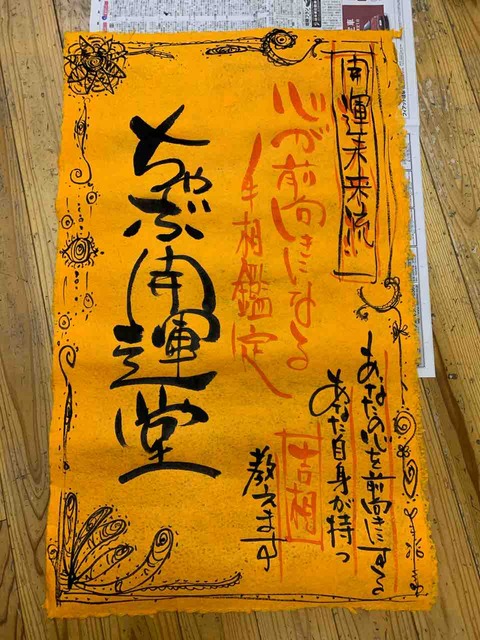 開運未来流
心が前向きになる
手相鑑定
ちゃぶ開運堂
あなたの心を前向きにする
あなた自身が持つ
吉相
教えます